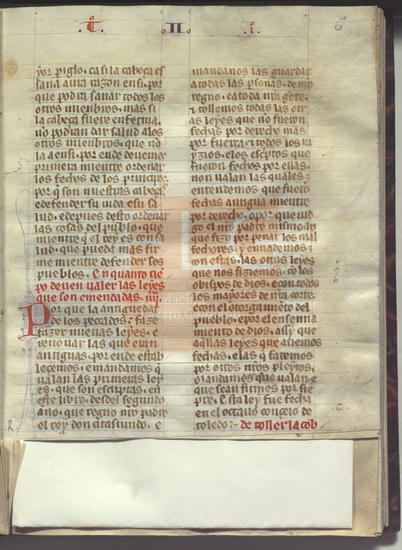 T. II. i. 6
yor piglo. ca si la cabeça es
sana aura razon en si. por
que podra sanar todos los
otros mienbros. mas si
la cabeça fuere enferma.
no podran dar salud a los
otros mienbros. que no
la a en si. por ende deuemos
primera mientre ordenar
los fechos de los principes.
por q̃ son nuestras cabeças
e defender su uida e su sa
lud. e depues desto ordenar
las cosas del pueblo. que
mientre q̃ el rey es con sa
lud. que pueda mas fir
me mientre defender sos
pueblos. En quanto tiẽ
po deuen valer las leyes
que son emendadas. iiij.
Por que la antiguedat
de los pecados. faze
fazer nueuas leyes. e
renouar las que eran
antiguas. por ende estab
lecemos. e mandamos q̃
ualan las primeras ley
es. que son escriptas en
este libro. desdel segundo
año. que regno nr̃o padre
el rey don cirasiundo. e
mandamos las guardar
a todas las psonas. de nr̃o
regno. e a toda nr̃a gente.
e tollemos todas las otr
as leyes que no fueron
fechas por derecho mas
por fuerça. e todos los iu
yzios. e los escriptos que
fueron fechos por ellas.
non ualan las quales
entendemos que fuerõ
fechas antigua mientre
por derecho. o por que uid
o el nr̃o padre mismo. lo
que fizo por penar los mal
fechores. e ennademos
con estas. las otras leyes
que nos fiziemos. cõ los
obispos de dios. e con todos
los mayores de nr̃a corte.
e con el otorgamiento del
pueblo. e por el ensenna
miento de dios. assy que
aq̃llas leyes que auiemos
fechas. e las q̃ faremos
por otros nr̃os pleytos.
mandamos que ualan. e
que sean firmes por siẽ
pre. Esta ley fue fecha
en el octauo conceio de
toledo. de toller la cob